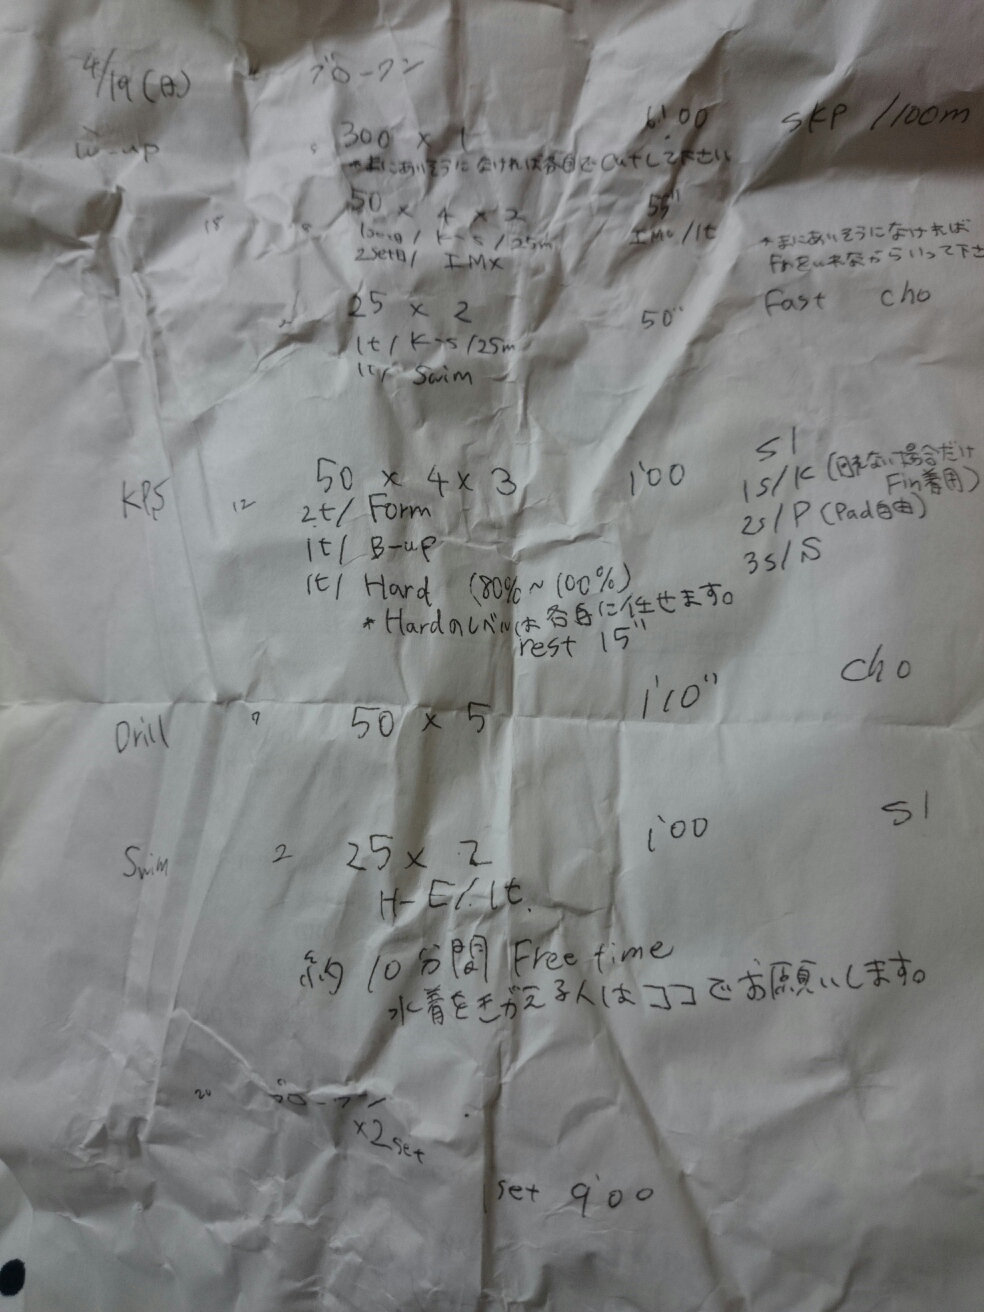 4/19(日) ブロークン
W-up 300 × 1 6'00 SKP /100m
*まにあいそうになければ各自でCutして下さい
50 × 4 × 2 55"
K-S/25m IMo/1t
2set目/ IMX
*まにあいそうになければ
25 × 2 50" Fast cho
1t/ K-S/25m
1t/ Swim
KPS 12 50 × 4 × 3 1'00 S1
2t/ Form 1S/K (回れない場合だけ
Fin着用)
1t/ B-up 2S/P (Pad自由)
1t/ Hard (80%~100%) 3S/S
*Hardのレベルは各自に任せます。
rest 15"
Drill 50 × 5 1'10" cho
Swim 2 25 × 2 1'00 S1
H-E/1t.
約10分間 Free time
水着をきがえる人はココでお願いします。
20 ブロークン
×2set
set 9'00